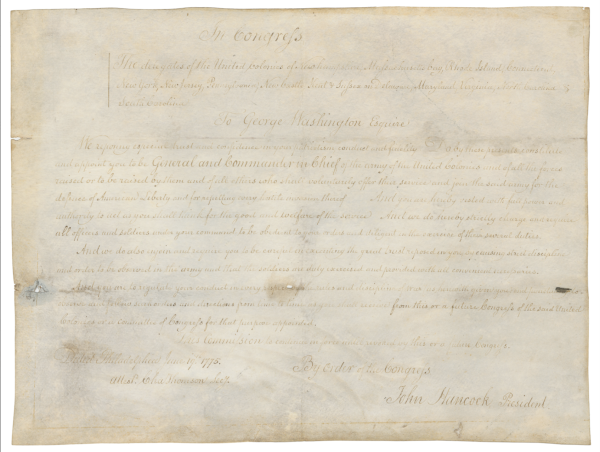 In Congress
The delegates of the United Colonies of New hampshire, Massachusetts bay, Rhode Island, Connecticut
New York, New Jersey, Pennsylvania, New Castle Kent & Sussex on Delaware, Maryland, Virginia, North Carolina &
South Carolina
To George Washington Esquire
We reposing especial trust and confidence in your patriotism conduct and fidelity Do by these presents constitute
and appoint you to be General and Commander in chief of the army of the United Colonies and of all the forces
raised or to be raised by them and of all others who shall voluntarily offer their service and join the said army for the
defence of American Liberty and for repelling every hostile invasion thereof And you are hereby vested with full power and
authority to act as you shall think for the good and welfare of the service And we do hereby strictly charge and require
all officers and soldiers under your command to be obedient to your orders & diligent in the exercise of their several duties
And we do also enjoin and require you to be careful in executing the great trust reposed in you, by causing strict discipline
and order to be observed in the army and that the soldiers are duly exercised and provided with all convenient necessaries
And you are to regulate your conduct in every respect by the rules and discipline of war
and directions from time to time as you shall receive from this or a future Congress of the said United
Colonies or a committee of Congress for that purpose appointed
This Commission to continue in force until revoked by this or a future Congress.
Dated Philadelphia June 19th 1775.
By order of the Congress
Attest. Chas Thomson Secy
John Hancock President